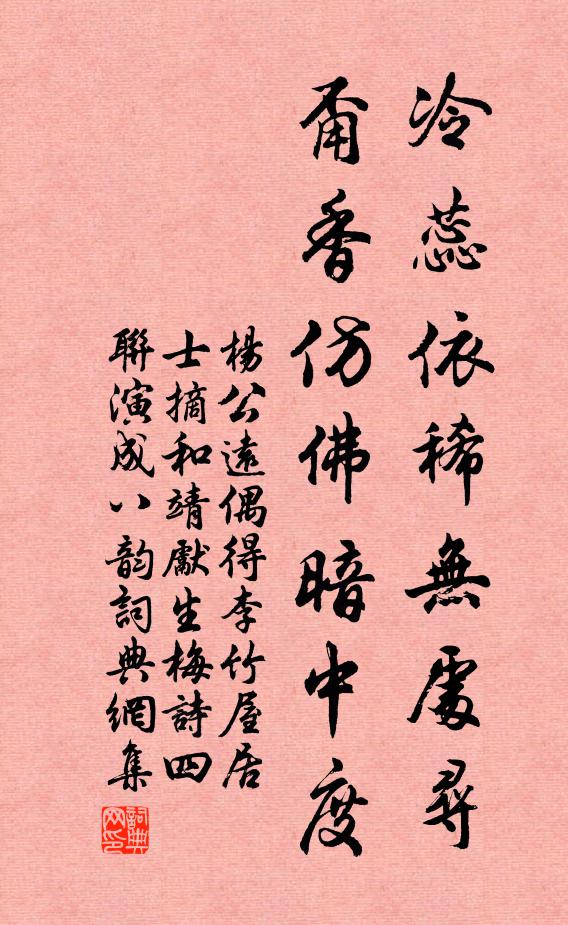 冷蕊依稀無處尋
甭香仿佛暗中度
楊公遠偶得李竹屋居
士摘和靖獻生梅詩四
聯演成八韵詞典網集
詞典
网印